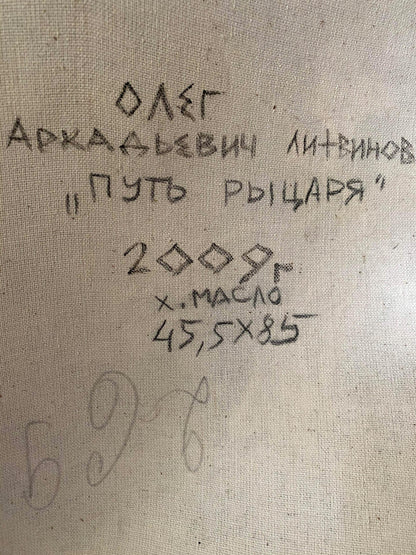 ОЛЕГ
АРКАДЬЕВИЧ ЛИТВИНОВ
„ПУТЬ РЫЦАРЯ"
2009г
х. МАСЛО
45,5X85